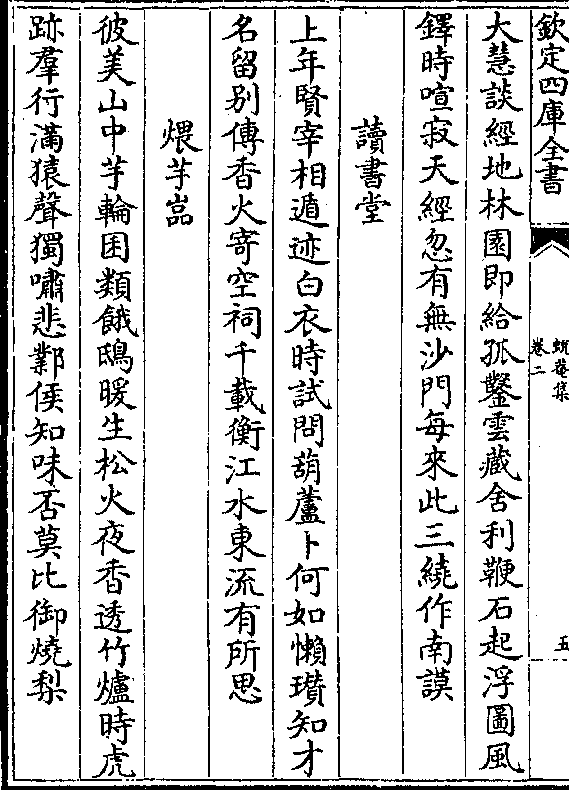 欽定四庫全書
蛻菴集
卷二
五
大慧談經地林園即給孤鑿雲藏舍利鞭石起浮圖風
鐸時喧寂天經忽有無沙門每來此三繞作南謨
讀書堂
上年賢宰相遁迹白衣時試問葫蘆卜何如懶瓚知才
名留别傳香火寄空祠千載衡江水東流有所思
煨芋嵓
彼美山中芋輪囷類餓鴟暖生松火夜香透竹爐時虎
跡羣行滿猿聲獨嘯悲鄴侯知味否莫比御燒梨